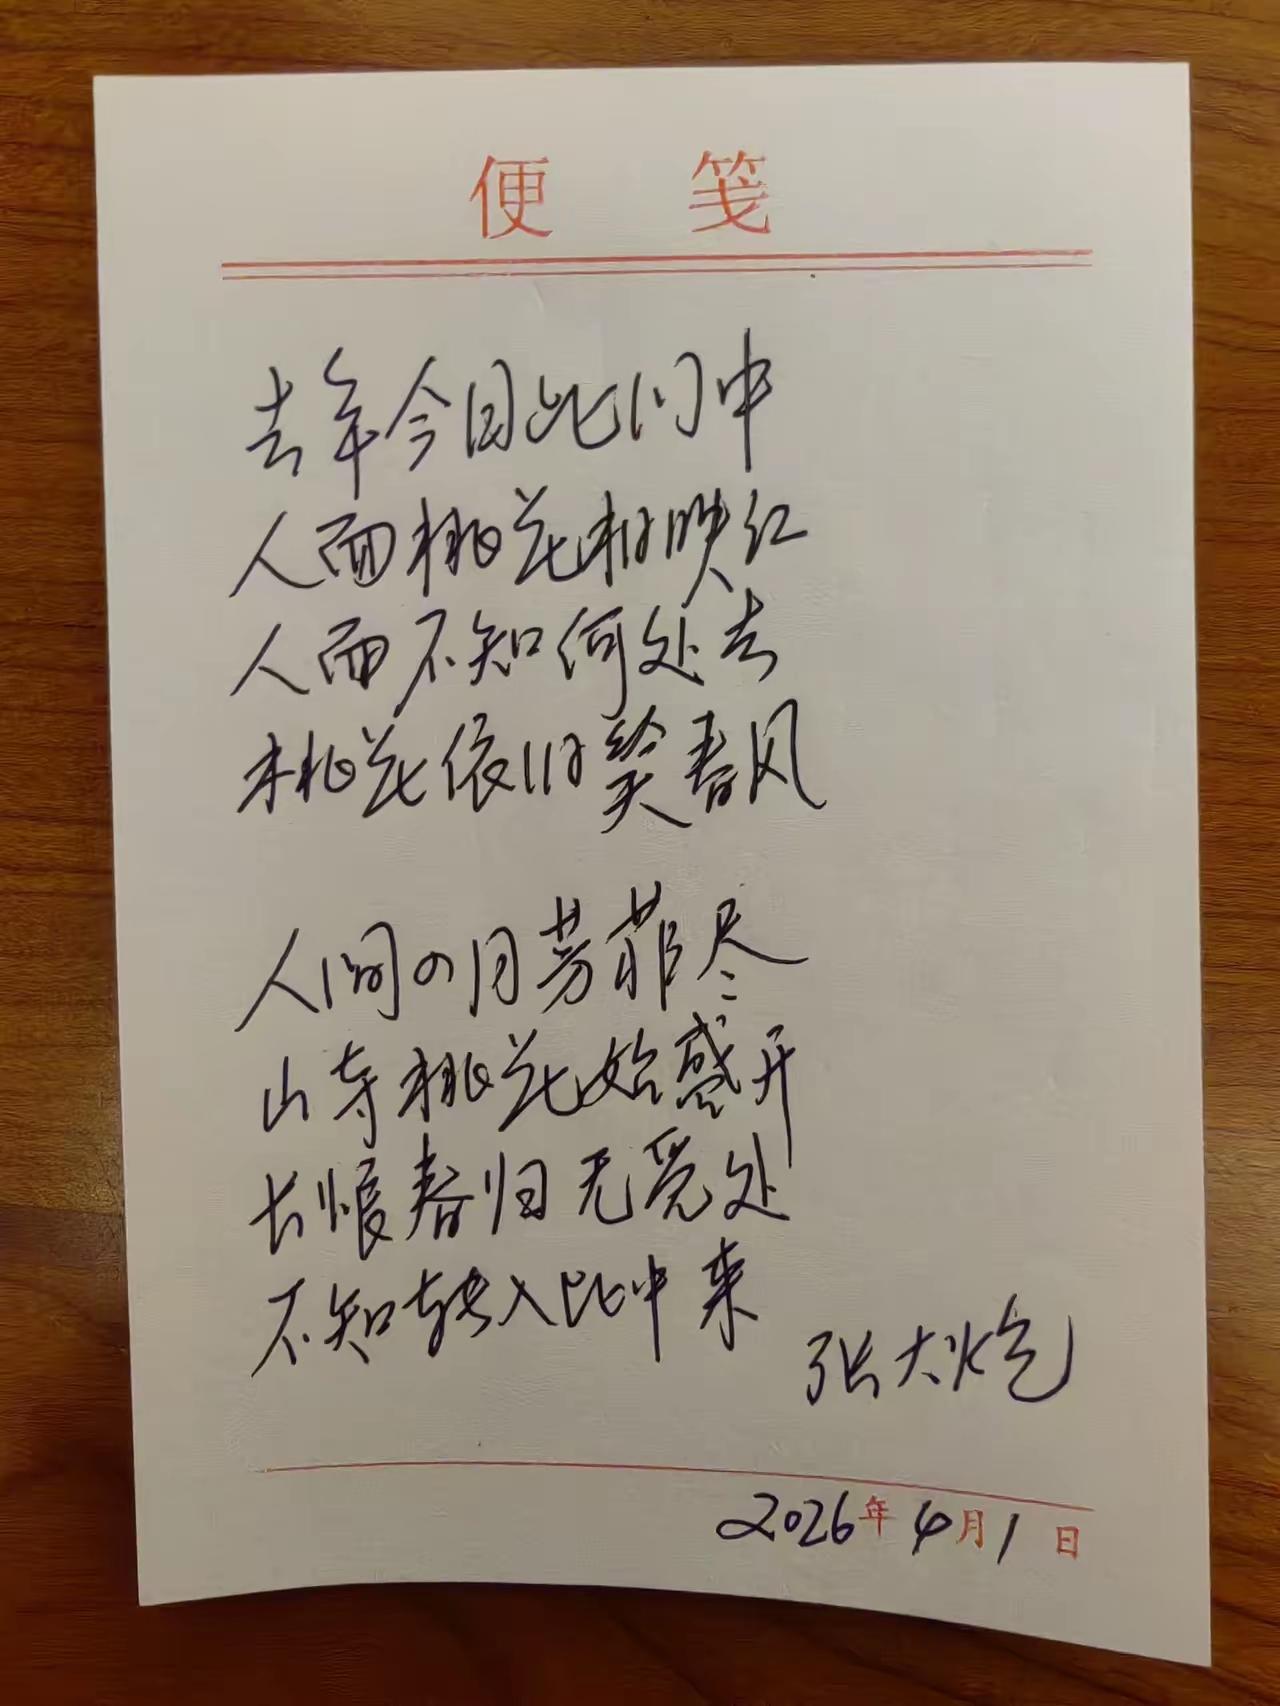 便笺
去年今日此门中
人面桃花相映红
人面不知何处去
桃花依旧笑春风
人间四月芳菲尽
山寺桃花始盛开
长恨春归无觅处
不知转入此中来
张大炮
2026年4月1日